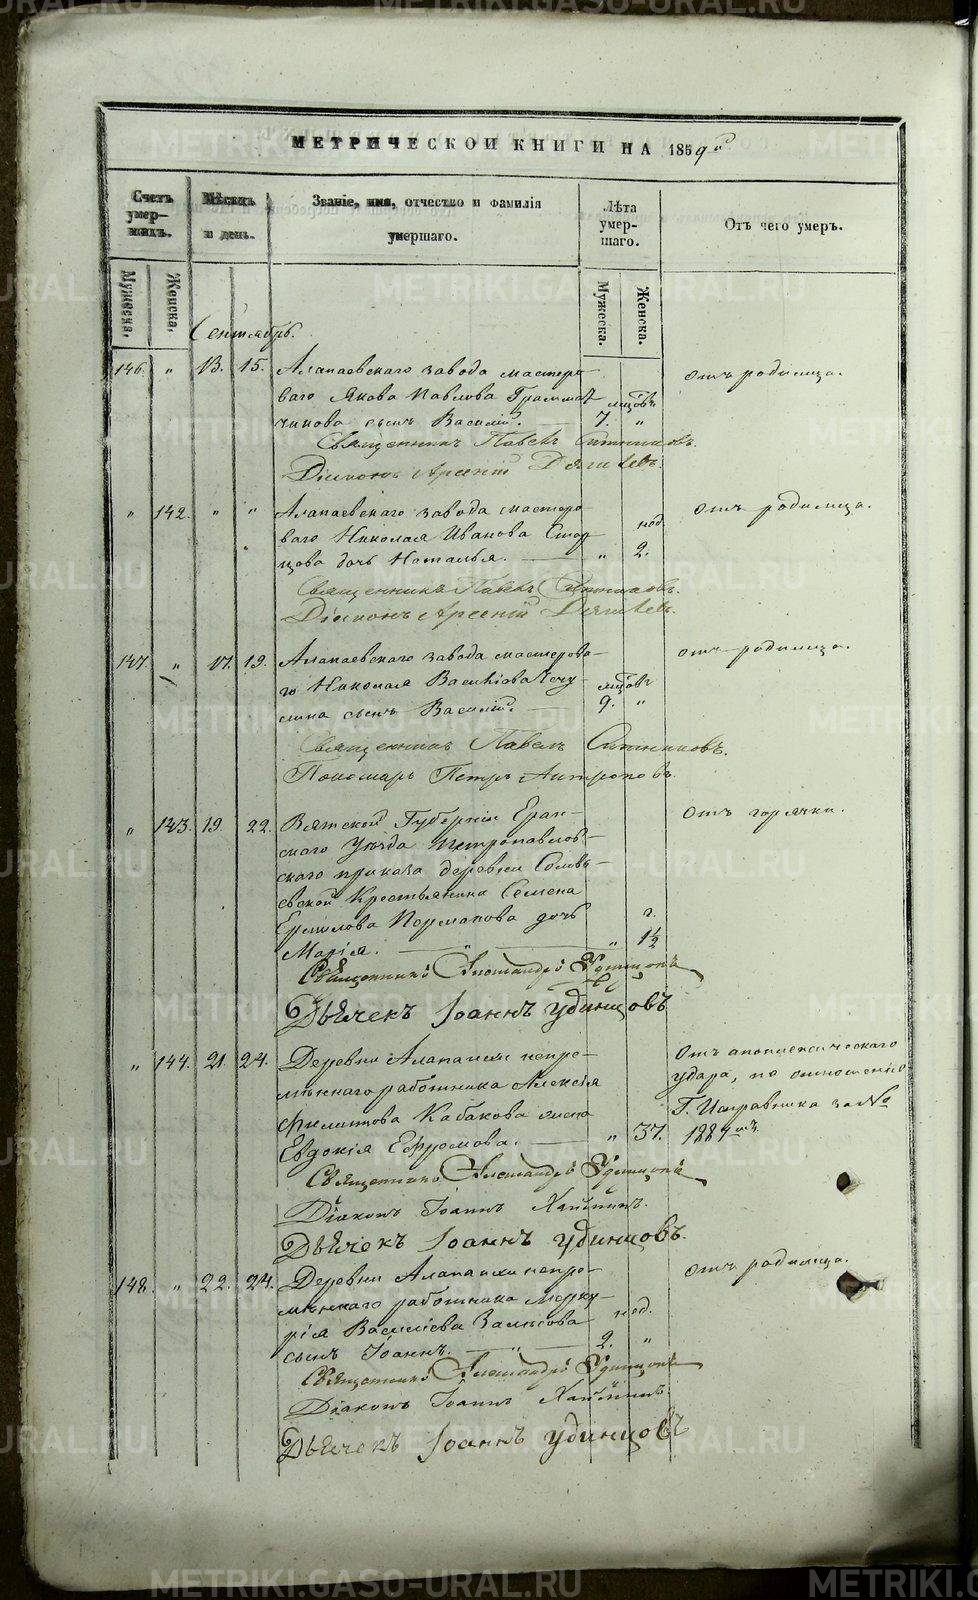 МЕТРИЧЕСКОЙ КНИГИ НА 1859й
Счетъ умершихъ.
Мѣсяцъ и день.
Званіе, имя, отчество и фамилія умершаго.
Лѣта умершаго.
Отъ чего умеръ.
Мужеска.
Женска.
Мужеска.
Женска.
Сентябрь.
146. " 13. 15. Алапаевскаго завода мастеро- отъ родимца.
ваго Якова Павлова Граммат- мцовъ
чикова сынъ Василій. 7. "
Священникъ Павелъ Ситниковъ.
Діаконъ Арсеній Дягилевъ.
" 142. " " Алапаевскаго завода мастеро- отъ родимца.
ваго Николая Иванова нед.
дочь Наталья. " 2.
Священникъ Павелъ Ситниковъ.
Діаконъ Арсеній Дягилевъ.
147. " 17. 19. Алапаевскаго завода мастерова- отъ родимца.
го Николая Васильева мцовъ
сынъ Василій. 9. "
Священникъ Павелъ Ситниковъ.
Пономарь Петръ Антроповъ.
" 143. 19. 22. Вятской Губерніи Еран- отъ горячки.
скаго Уѣзда Петропавлов-
скаго приказа деревни Соловь-
евской Крестьянина Семена
Ермилова дочь г.
Марія. " " 1½
Священникъ Александръ Удинцовъ
Дьячекъ Іоаннъ Удинцовъ
" 144. 21. 24. Деревни Алапаихи непре- Отъ апоплексическаго
мѣннаго работника Алексія удара, по отношенію
Филиппова Кабакова жена Г. Исправника за №
Евдокія Ефремова. " 37.
Священникъ Александръ Удинцовъ
Діаконъ Іоаннъ
Дьячекъ Іоаннъ Удинцовъ.
148. " 22. 24. Деревни Алапаихи непре- отъ родимца.
мѣннаго работника Мерку-
рія Васильева нед.
сынъ Іоаннъ. " 2. "
Священникъ Александръ Удинцовъ
Діаконъ Іоаннъ
Дьячекъ Іоаннъ Удинцовъ
METRIKI.GASO-URAL.RU